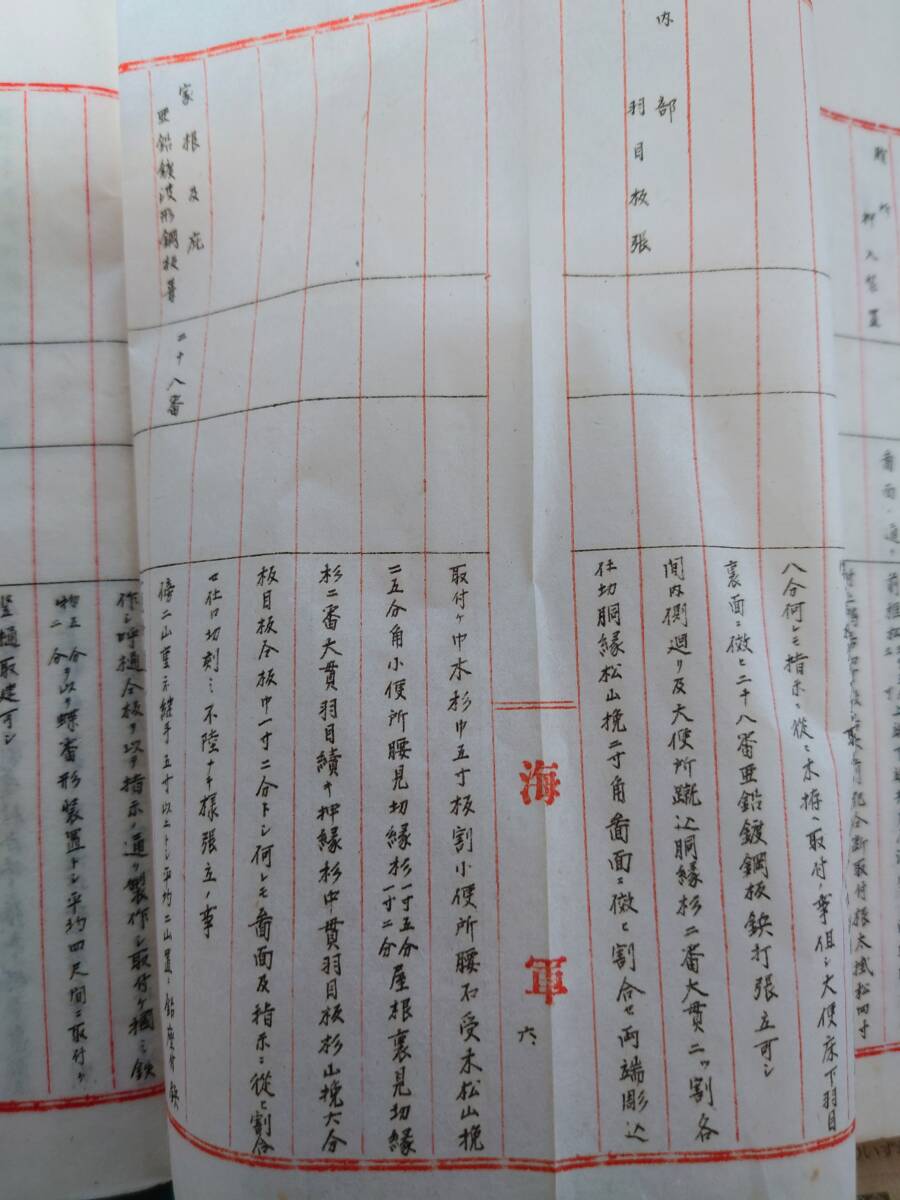 八分何レモ指示ニ從ヒ木拵ヘ取付ノ事但シ大便床下羽目
裏面ニ倣ヒ二十八番亜鉛鍍鋼板鋲打張立可シ
内部
羽目板張
間内側廻リ及大便所蹴込胴縁杉二番大貫二ツ割各
仕切胴縁松山挽二寸角畵面ニ倣ヒ割合セ両端彫込
海軍
六
取付ケ巾木杉巾五寸板割小便所腰石受木松山挽
二五分角小便所腰見切縁杉一寸五分一寸二分屋根裏見切縁
杉二番大貫羽目續キ押縁杉中貫羽目板杉山挽六分
板目板合板巾一寸二分トシ何レモ畵面及指示ニ從ヒ割合
セ仕口切刻ミ不陸ナキ様張立ノ事
家根及庇
亜鉛鍍波形鋼板葺
二十八番
傍二山重ネ継手五寸以上トシ平均二山置ニ鉛座付鋲
作シ呼樋合板ヲ以テ指示ノ通リ製作シ取付ケ摑ミ鉄
物五分二分ヲ以テ蝶番形装置トシ平均四尺間ニ取付ケ
竪樋取建可シ
押入装置
畵面ノ通リ